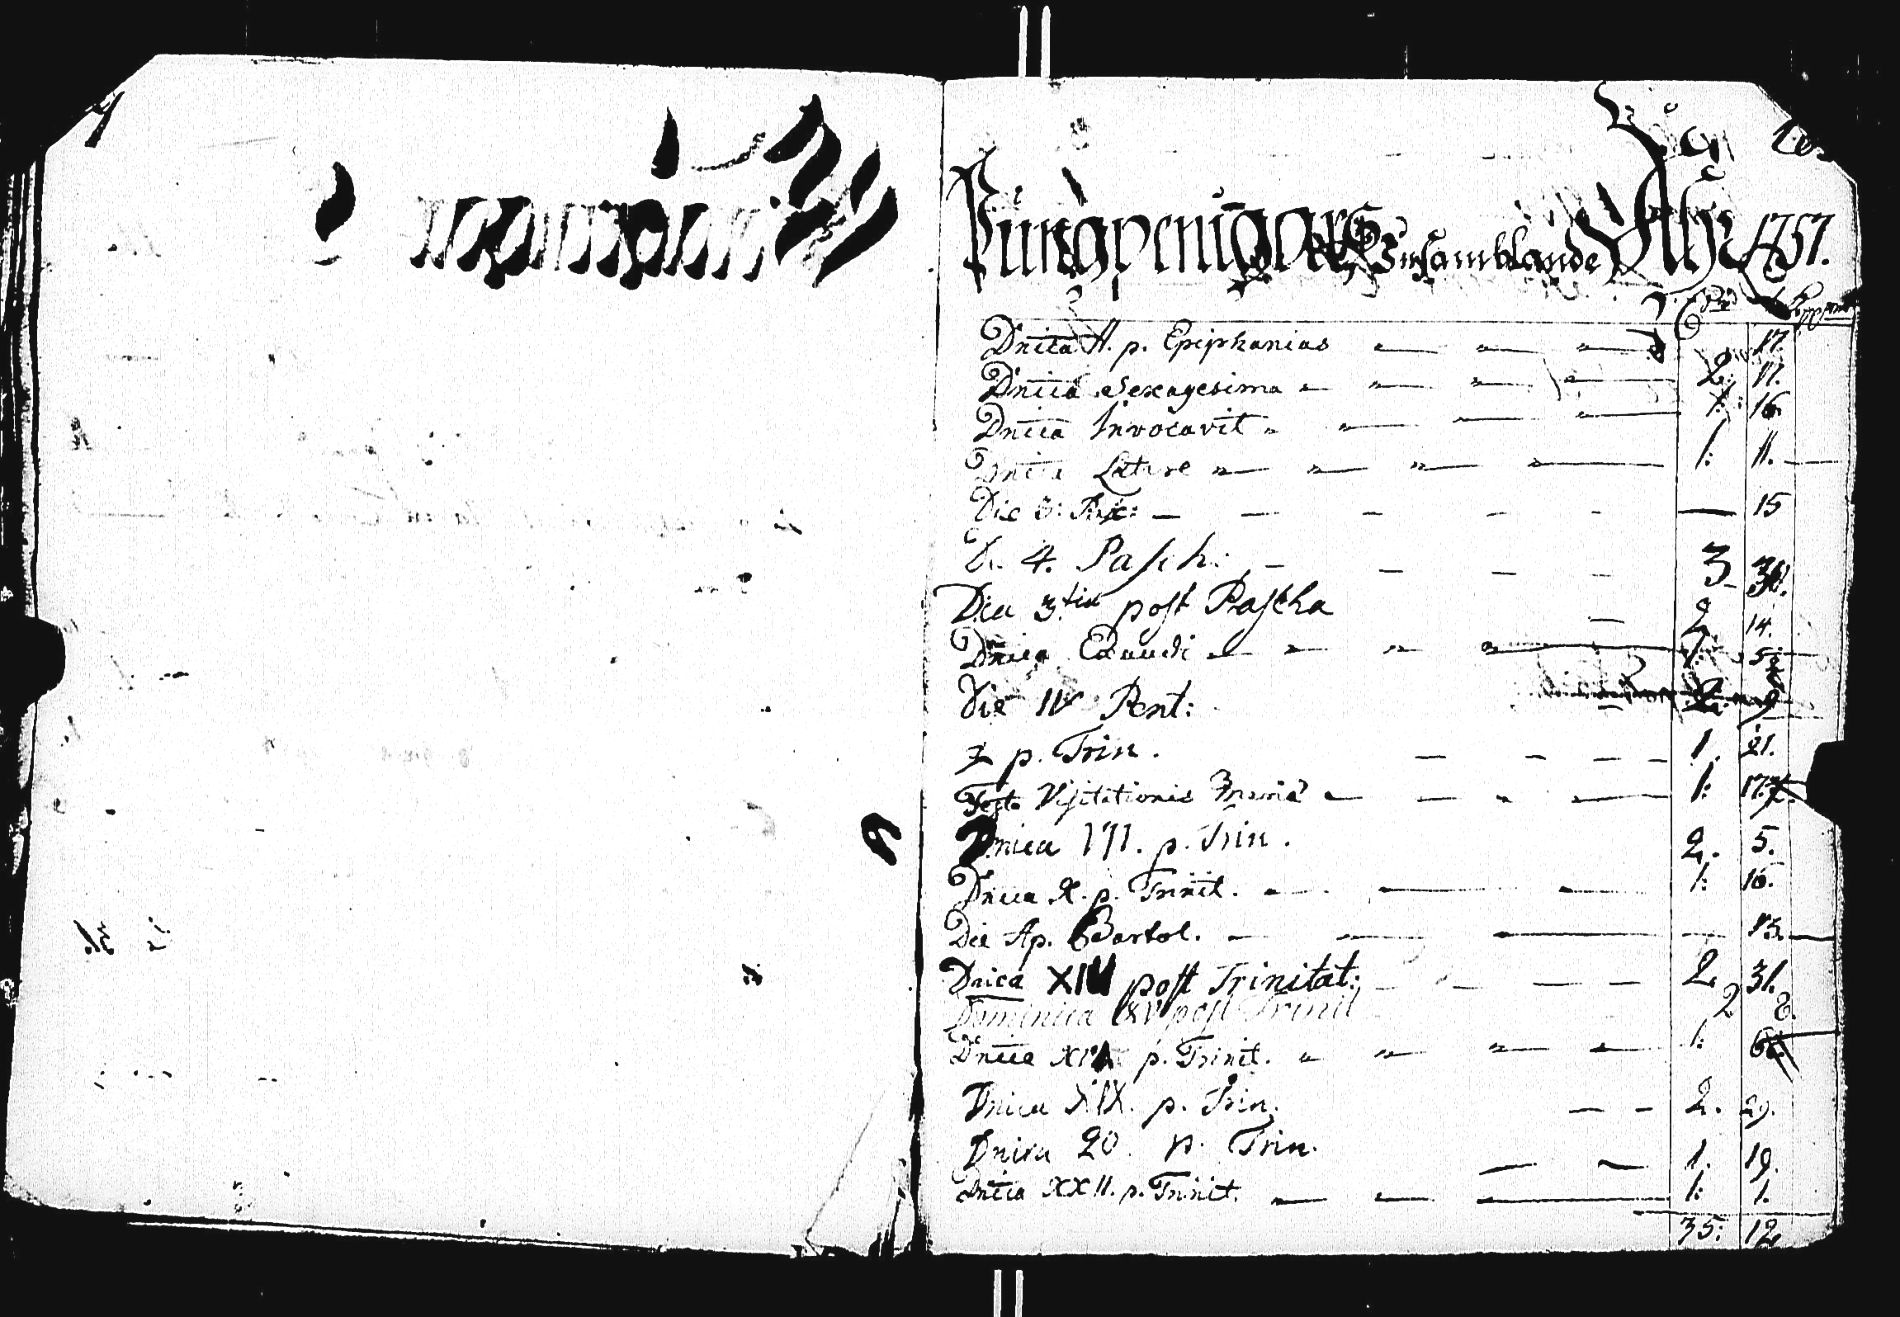 Pung penigars Insamblande Åhr 1757.
Dnica II. p. Epiphanias 17.
Dnica Sexagesima 2: 17.
Dnica Invocavit 1: 16.
Dnica Lætare 1: 11.
Die 3: Pasc: 15
D. 4. Pasch: 3
Dca 3tia post Pascha 2. 14.
Dnica Exaudi 1: 5
Die IV Pent: 9
p. Trin. 1. 21.
Festo Visitationis Mariæ 1: 17.
Dnica VII. p. Trin. 2. 5.
Dnica X. p. Trinit. 1: 16.
Die Ap. Bartol. 15.
Dnica XIV post Trinitat: 2. 31.
Dominica XV post Trinit 2 8.
Dnica p. Trinit. 1: 6
Dnica XIX. p. Trin. 2. 29.
Dnica 20. p. Trin. 1. 19.
Dnica XXII. p. Trinit. 1: 1.
35: 12